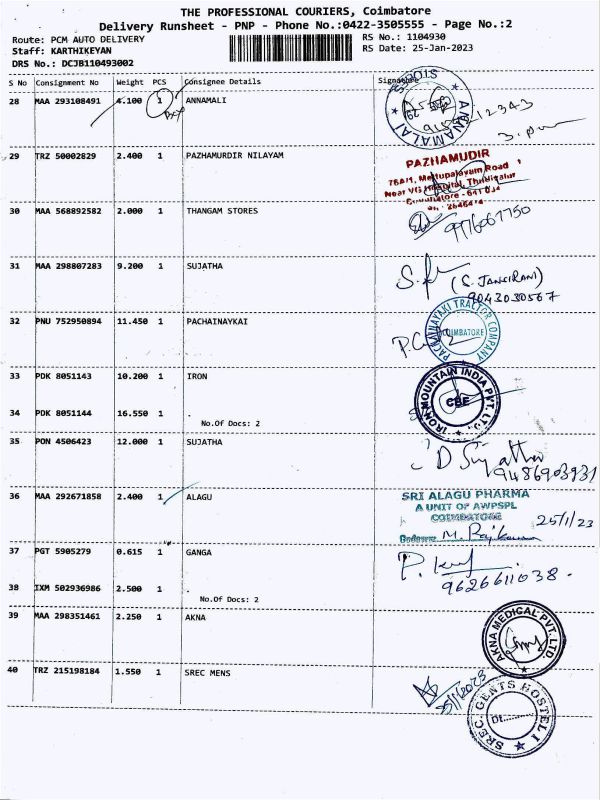 THE PROFESSIONAL COURIERS, Coimbatore
Delivery Runsheet - PNP - Phone No.:0422-3505555 - Page No.:2
Route: PCM AUTO DELIVERY
RS No.: 1104930
Staff: KARTHIKEYAN
RS Date: 25-Jan-2023
DRS No.: DCJB110493002
S No Consignment No Weight PCS Consignee Details Signature
28 MAA 293108491 4.100 1 ANNAMALI
ANNAMALAI STORES
29 TRZ 50002829 2.400 1 PAZHAMURDIR NILAYAM
PAZHAMUDIR
Mettupalayam Road
Near VG Hospital,
30 MAA 568892582 2.000 1 THANGAM STORES
31 MAA 298807283 9.200 1 SUJATHA
(S. JANCIRANI)
9043030567
32 PNU 752950894 11.450 1 PACHAINAYKAI
PACHAINAYAKI TRACTOR COMPANY
COIMBATORE
33 PDK 8051143 10.200 1 IRON
IRON MOUNTAIN INDIA PVT. LTD.
CBE
34 PDK 8051144 16.550 1 .
No.Of Docs: 2
35 PON 4506423 12.000 1 SUJATHA
9486903931
36 MAA 292671858 2.400 1 ALAGU
SRI ALAGU PHARMA
A UNIT OF AWPSPL
COIMBATORE
25/1/23
37 PGT 5905279 0.615 1 GANGA
9626611038.
38 IXM 502936986 2.500 1 .
No.Of Docs: 2
39 MAA 298351461 2.250 1 AKNA
AKNA MEDICAL PVT. LTD
40 TRZ 215198184 1.550 1 SREC MENS
SREC. GENTS HOSTEL I